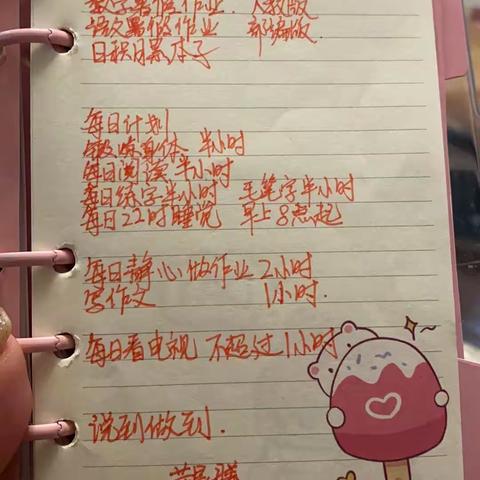 数学暑假作业. 人教版
语文暑假作业 部编版.
日积月累本子
每日计划
锻炼身体 半小时
每日阅读 半小时
每日练字半小时 毛笔字半小时
每日22时睡觉 早上8点起
每日静心做作业 2小时
写作文 1小时.
每日看电视 不超过1小时
说到做到.